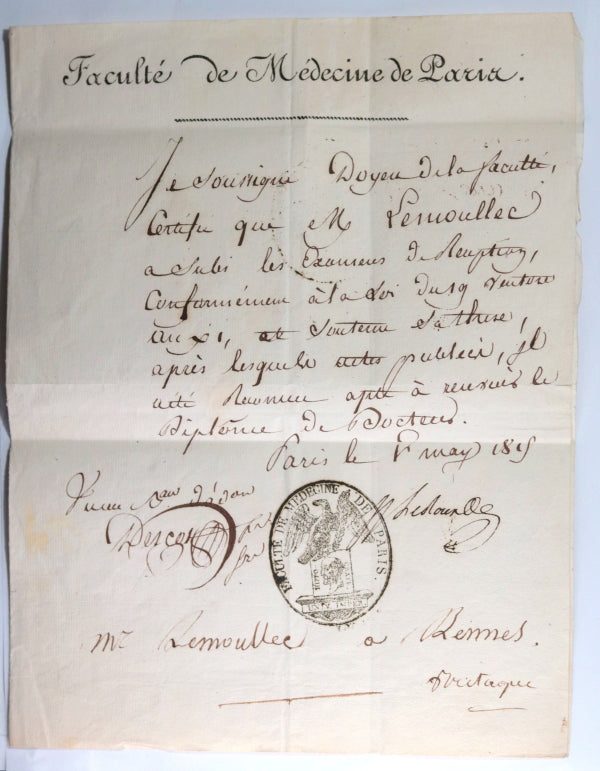 Faculté de Médecine de Paris.
Je Soussigné Doyen de la faculté,
Certifie que M Lemoullec
a Subi les Examens de Reception,
Conformément à la Loi du 19 Ventose
an XI, et Soutenu Sa these,
après lesquels actes publics, il
a été Reconnu apte à recevoir le
Diplôme de Docteur.
Paris le 1 may 1815
FACULTÉ DE MEDECINE DE PARIS.
Mr Lemoullec a Rennes.
Bretagne